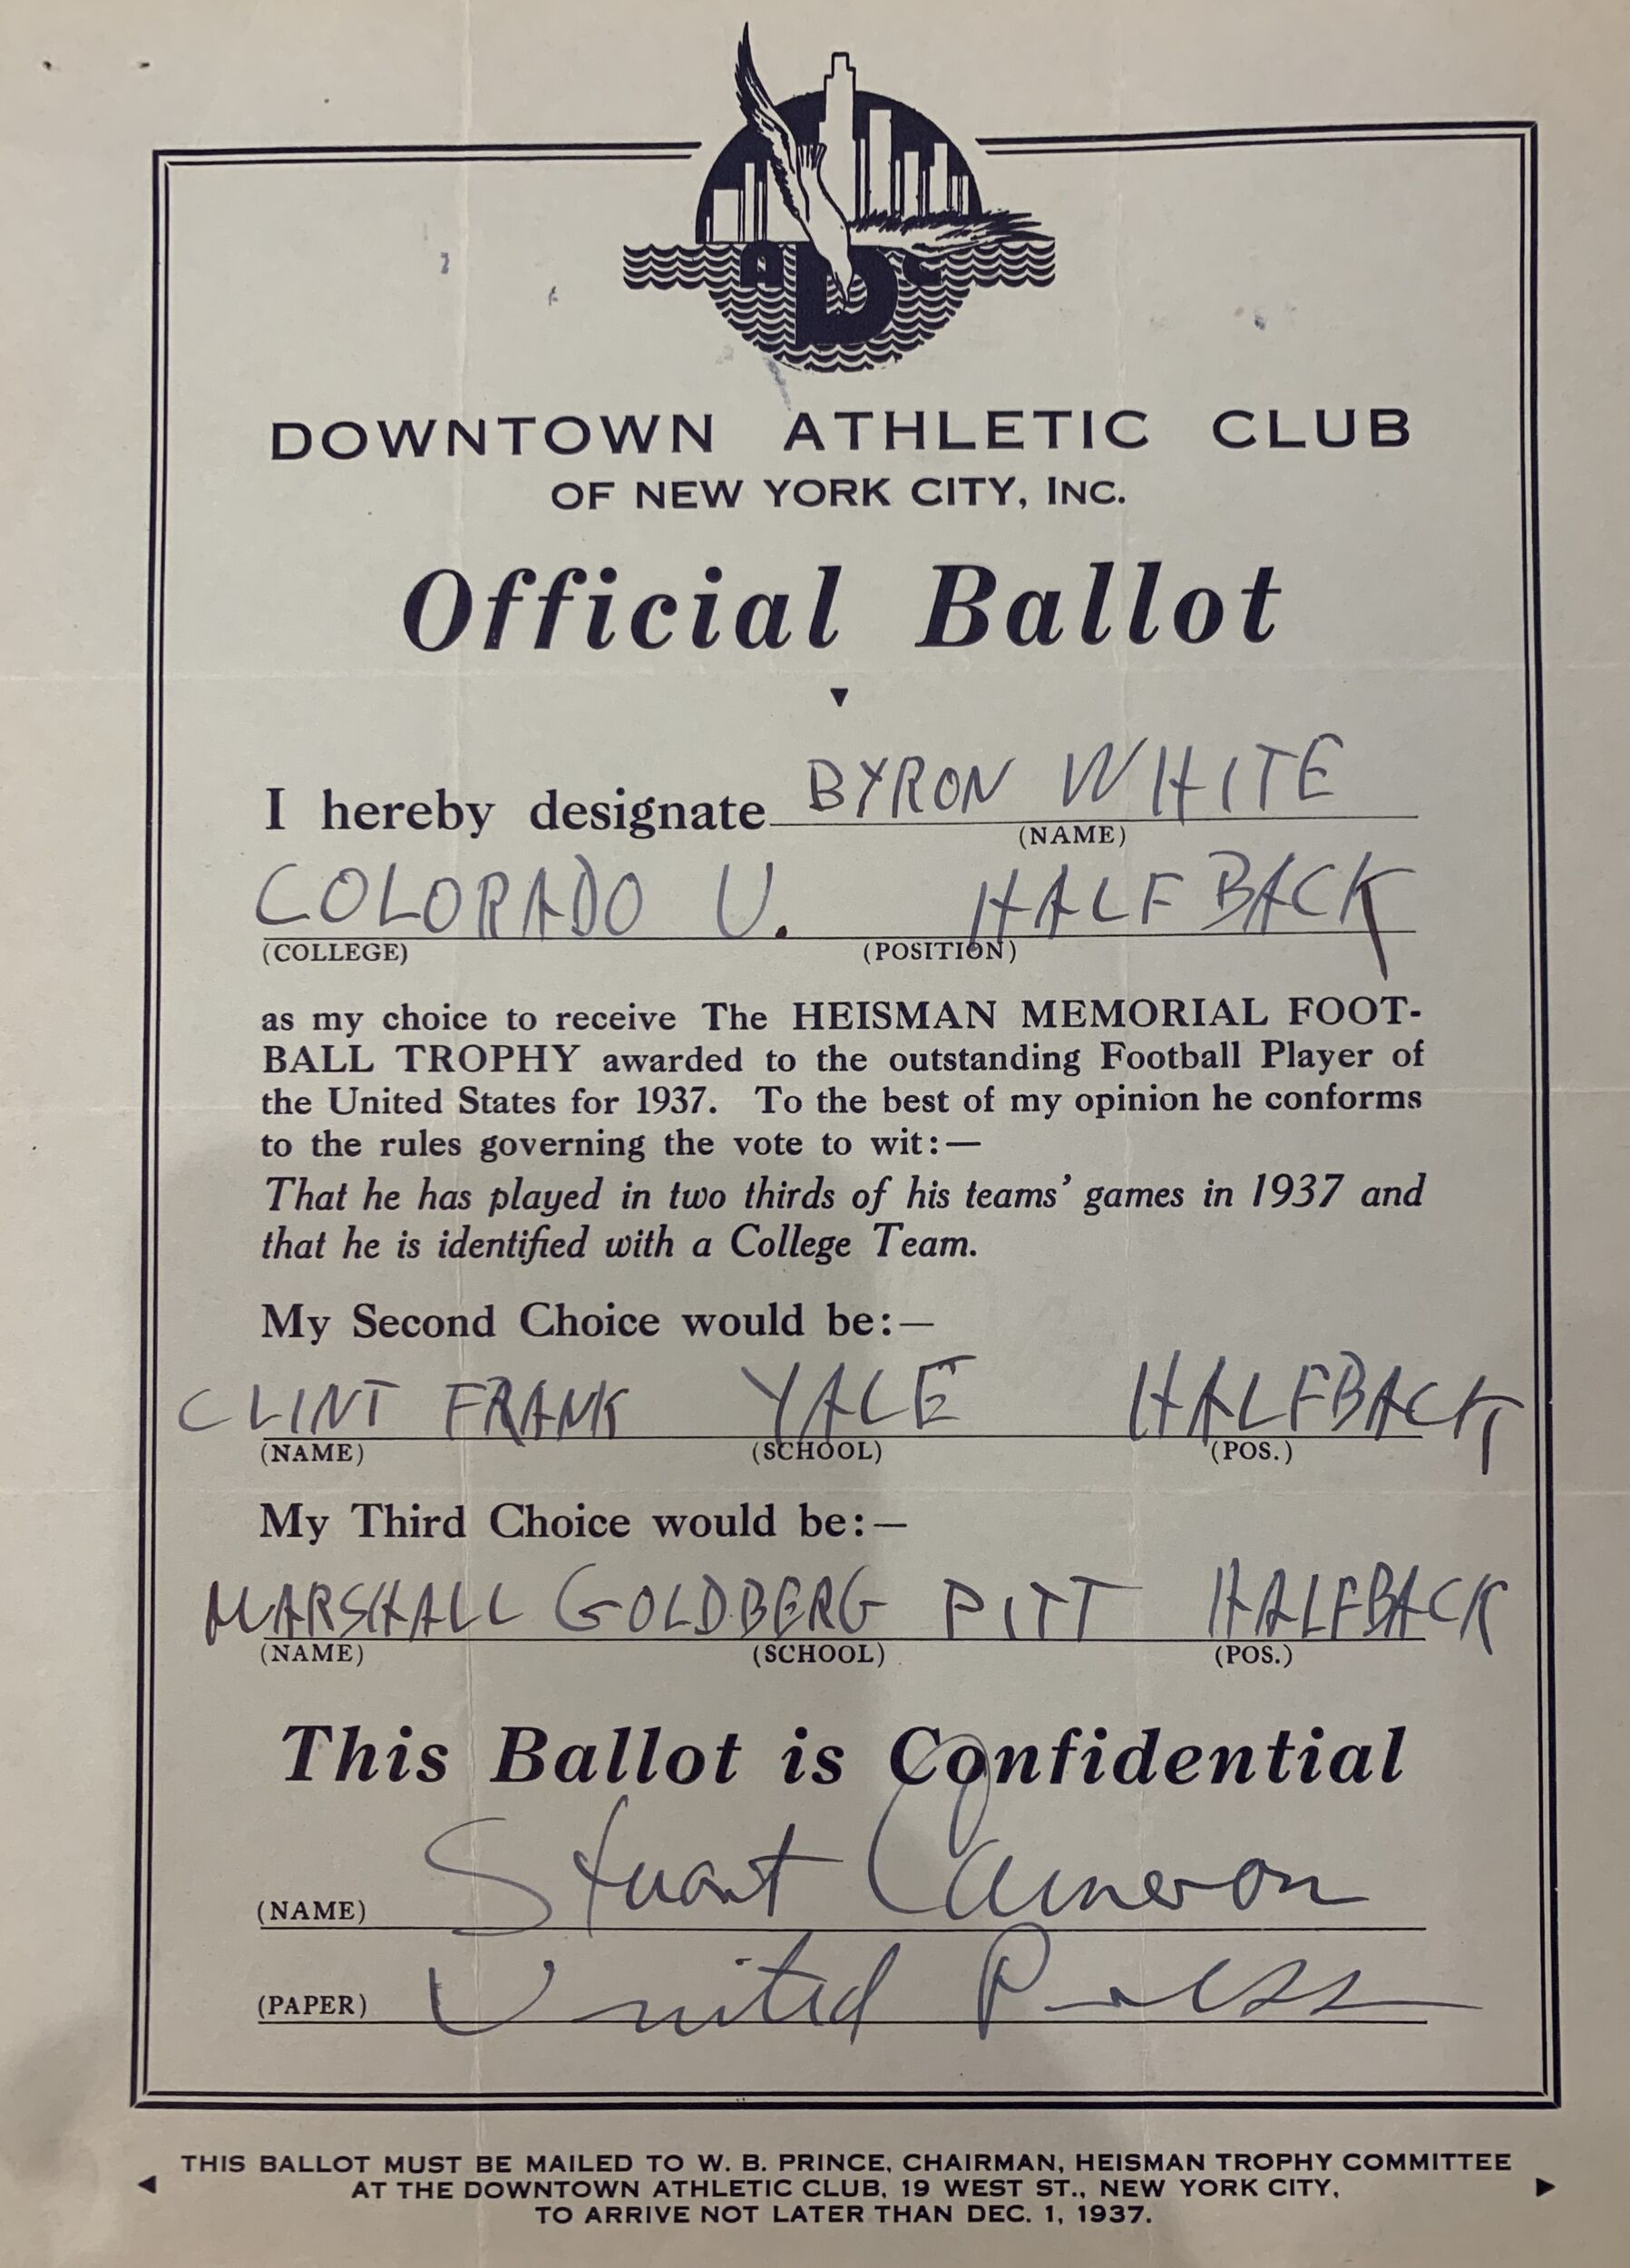 A D C
DOWNTOWN ATHLETIC CLUB
OF NEW YORK CITY, INC.
Official Ballot
I hereby designate BYRON WHITE
(NAME)
COLORADO U. HALFBACK
(COLLEGE) (POSITION)
as my choice to receive The HEISMAN MEMORIAL FOOT-
BALL TROPHY awarded to the outstanding Football Player of
the United States for 1937. To the best of my opinion he conforms
to the rules governing the vote to wit:—
That he has played in two thirds of his teams' games in 1937 and
that he is identified with a College Team.
My Second Choice would be:—
CLINT FRANK YALE HALFBACK
(NAME) (SCHOOL) (POS.)
My Third Choice would be:—
MARSHALL GOLDBERG PITT HALFBACK
(NAME) (SCHOOL) (POS.)
This Ballot is Confidential
(NAME) Stuart Cameron
(PAPER) United Press
THIS BALLOT MUST BE MAILED TO W. B. PRINCE, CHAIRMAN, HEISMAN TROPHY COMMITTEE
AT THE DOWNTOWN ATHLETIC CLUB, 19 WEST ST., NEW YORK CITY,
TO ARRIVE NOT LATER THAN DEC. 1, 1937.